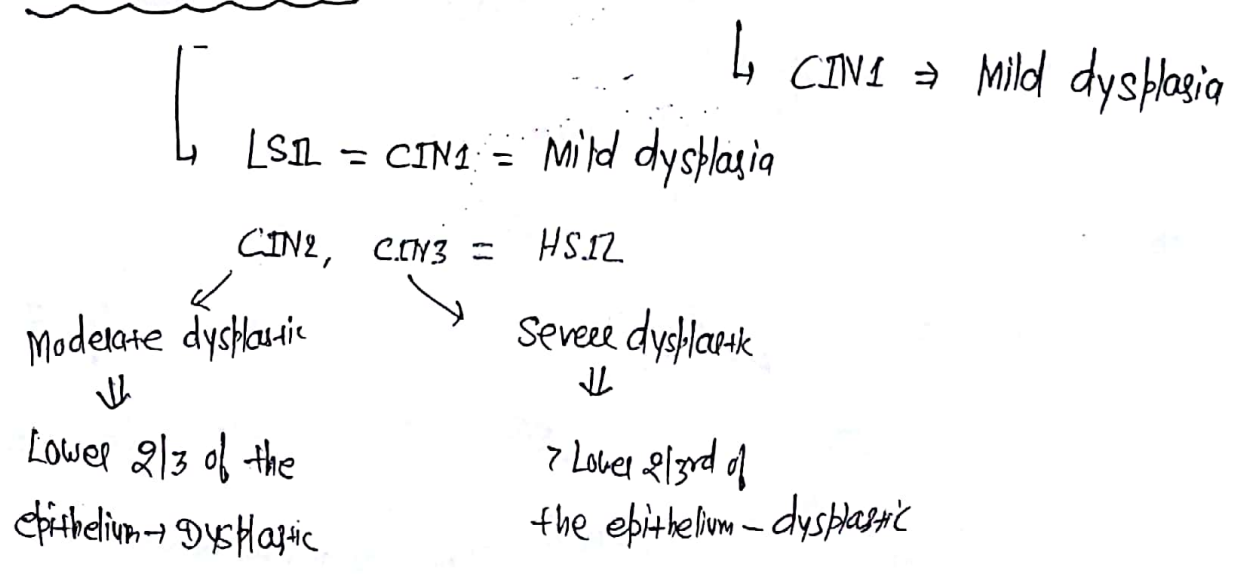 ↳ CIN1 ⇒ Mild dysplasia
↳ LSIL = CIN1 = Mild dysplasia
CIN2, CIN3 = HSIL
Moderate dysplastic
⇓
Lower 2/3 of the
epithelium → Dysplastic
Severe dysplastic
⇓
> Lower 2/3rd of
the epithelium - dysplastic